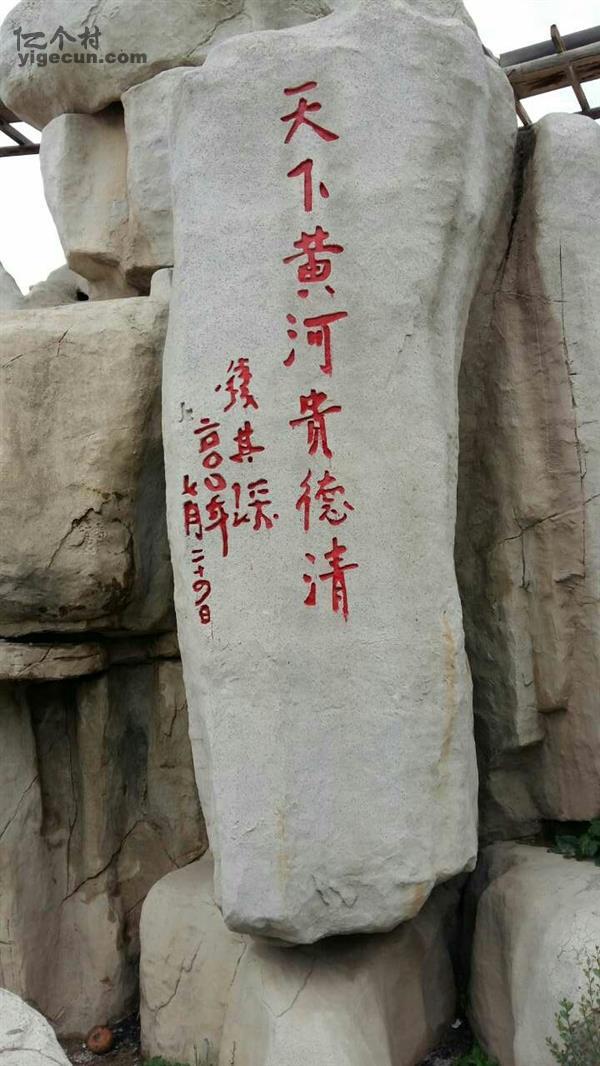 亿个村
yigecun.com
天下黄河贵德清
钱其琛
二〇〇〇年
七月二十四日